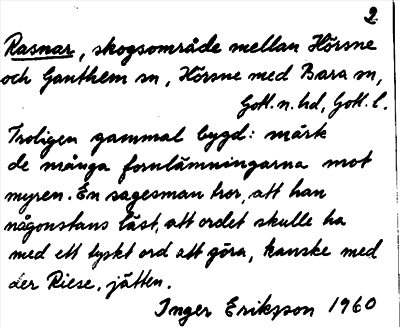 2
Rasnar, skogsområde mellan Hörsne
och Ganthem sn, Hörsne med Bara sn,
Gotl. n. hd, Gotl. l.
Troligen gammal bygd: märk
de många fornlämningarna mot
myren. En sagesman tror, att han
någonstans läst, att ordet skulle ha
med ett tyskt ord att göra, kanske med
der Riese, jätten.
Inger Eriksson 1960